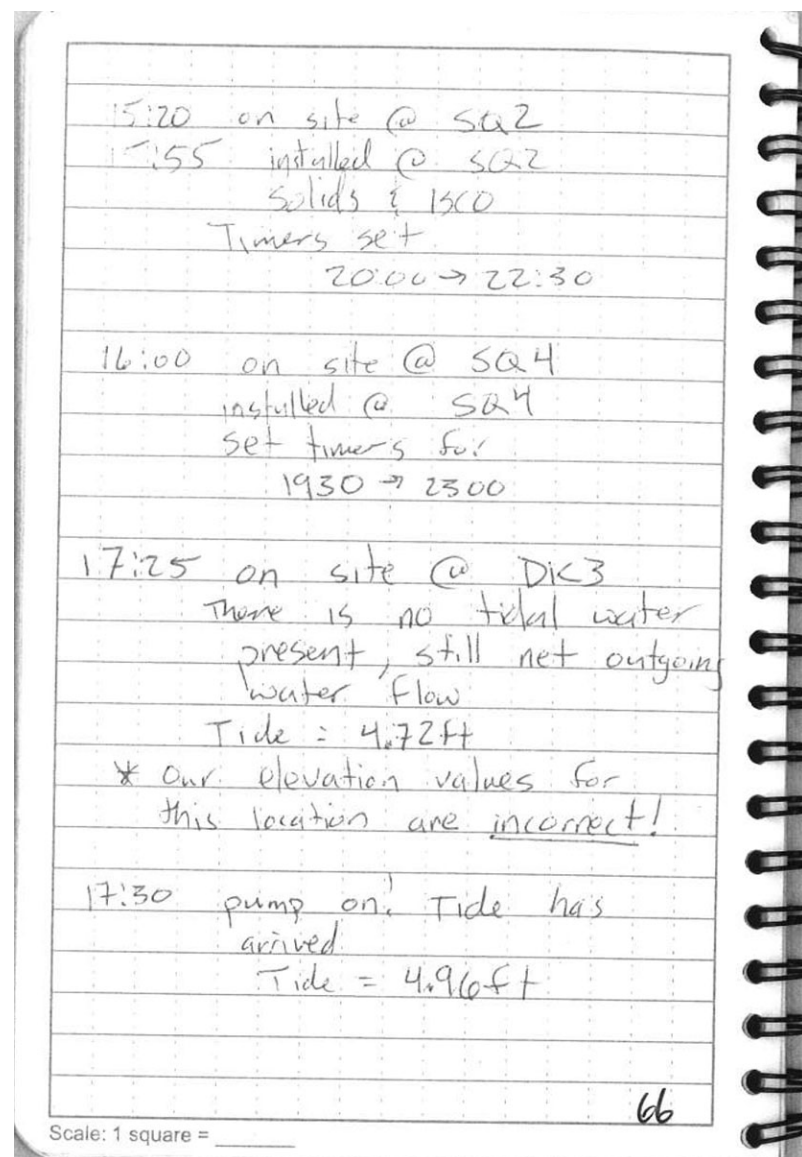 15:20 on site @ SQ2
15:55 installed @ SQ2
Solids & ISCO
Timers set
20:00 → 22:30
16:00 on site @ SQ4
installed @ SQ4
set timers for
1930 → 2300
17:25 on site @ DK3
There is no tidal water
present, still net outgoing
water flow
Tide = 4.72ft
* Our elevation values for
this location are incorrect!
17:30 pump on! Tide has
arrived
Tide = 4.96ft
66
Scale: 1 square = ______